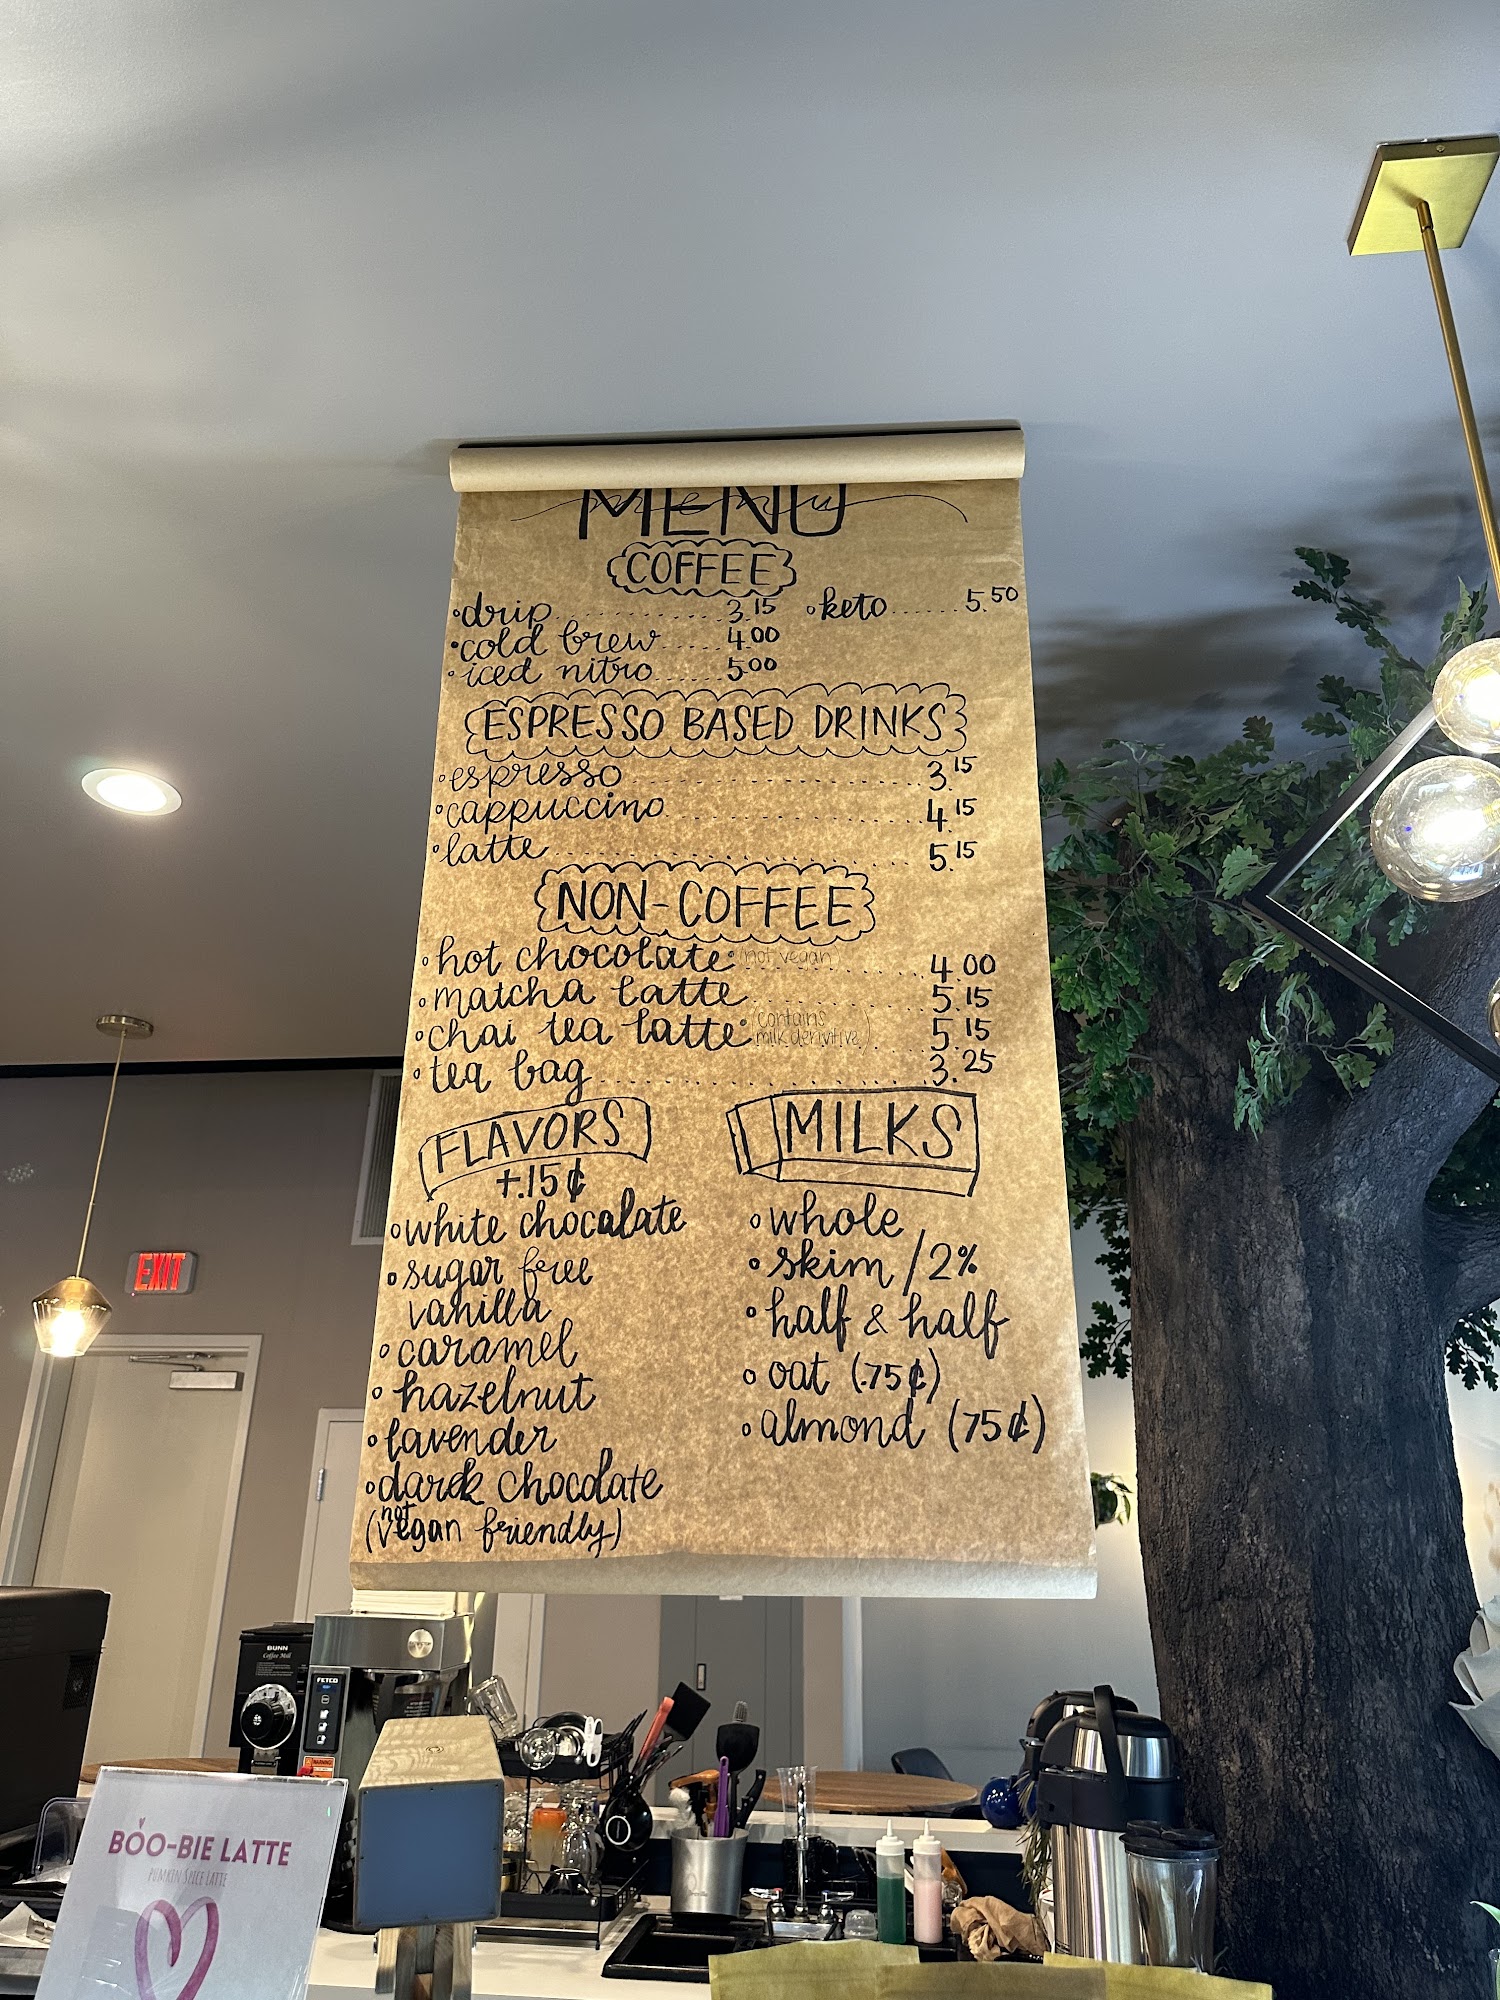 MENU
menu
COFFEE
drip 3.15 keto 5.50
cold brew 4.00
iced nitro 5.00
ESPRESSO BASED DRINKS
espresso 3.15
cappuccino 4.15
latte 5.15
NON-COFFEE
hot chocolate (not vegan) 4.00
matcha latte 5.15
chai tea latte (contains milk derivitive) 5.15
tea bag 3.25
FLAVORS
+.15¢
white chocalate
sugar free
vanilla
caramel
hazelnut
lavender
darek chocolate
(not vegan friendly)
MILKS
whole
skim / 2%
half & half
oat (.75¢)
almond (75¢)
EXIT
BUNN
Coffee Mill
FETCO
BOO-BIE LATTE
PUMKIN SPICE LATTE